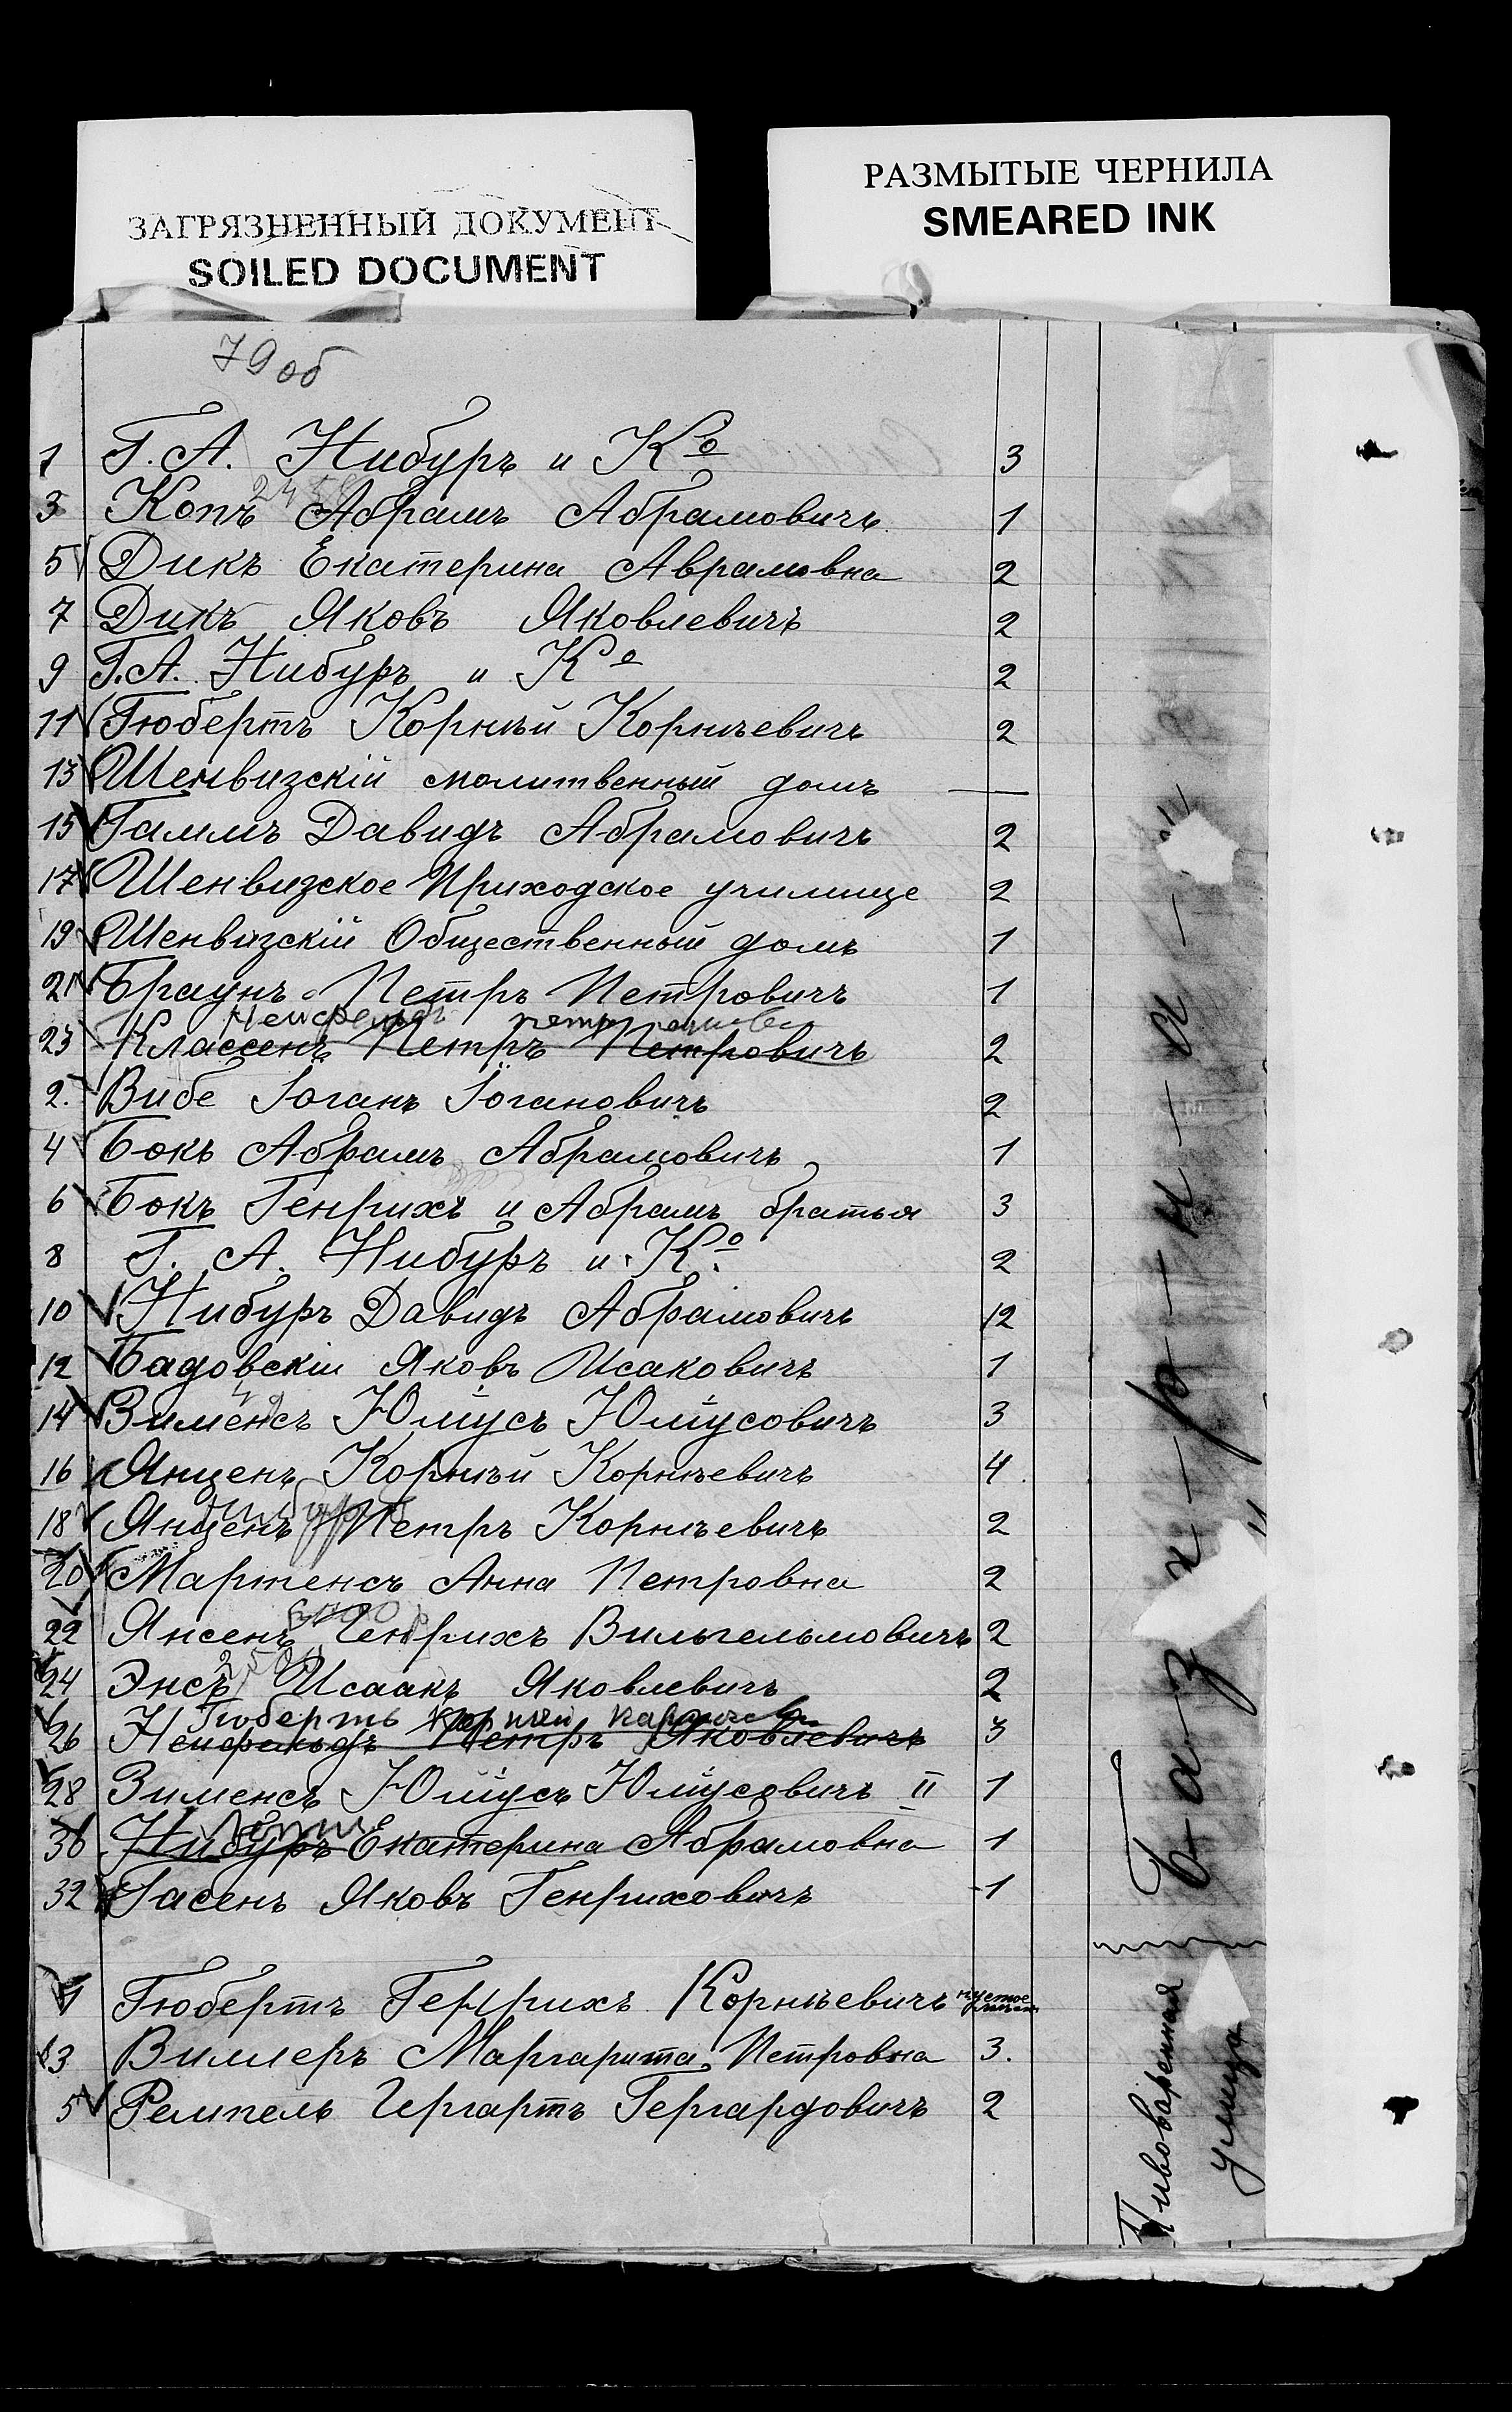 ЗАГРЯЗНЕННЫЙ ДОКУМЕНТ
SOILED DOCUMENT
РАЗМЫТЫЕ ЧЕРНИЛА
SMEARED INK
79 об
1 Г. А. Нибуръ и Ко 3
3 Копъ Абрамъ Абрамовичъ 1
5 Дикъ Екатерина Аврамовна 2
7 Дикъ Яковъ Яковлевичъ 2
9 Г. А. Нибуръ и Ко 2
11 Гюбертъ Корнѣй Корнѣевичъ 2
13 Шенвизскій молитвенный домъ —
15 Гаммъ Давидъ Абрамовичъ 2
17 Шенвизское Приходское училище 2
19 Шенвизскій Общественный домъ 1
21 Браунъ Петръ Петровичъ 1
23 Классенъ Петръ Петровичъ 2
2. Вибе Іоганъ Іогановичъ 2
4 Бокъ Абрамъ Абрамовичъ 1
6 Бокъ Генрихъ и Абрамъ братья 3
8 Г. А. Нибуръ и Ко. 2
10 Нибуръ Давидъ Абрамовичъ 12
12 Бадовскій Яковъ Исаковичъ 1
14 Зименсъ Юліусъ Юліусовичъ 3
16 Янценъ Корнѣй Корнѣевичъ 4
18 Янценъ Петръ Корнѣевичъ 2
20 Мартенсъ Анна Петровна 2
22 Янсенъ Генрихъ Вильгельмовичъ 2
24 Энсъ Исаакъ Яковлевичъ 2
Гюбертъ Корнѣй
26 Нейфельдъ Петръ Яковлевичъ 3
28 Зименсъ Юліусъ Юліусовичъ II 1
30 Нибуръ Екатерина Абрамовна 1
32 Гасенъ Яковъ Генриховичъ 1
1 Гюбертъ Генрихъ Корнѣевичъ пустое
3 Виллеръ Маргарита Петровна 3.
5 Ремпель Гергартъ Гергардовичъ 2
Б-а-з-а-р-н-а-я
Пивоваренная
улица